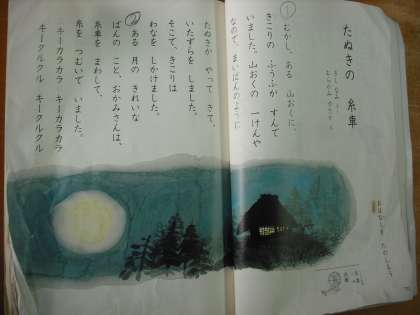 たぬきの 糸車
きし なみ
むらかみ かつみ え
①
むかし、ある 山おくに、
きこりの ふうふが すんで
いました。山おくの 一けんや
なので、まいばんのように
たぬきが やって きて、
いたずらを しました。
そこで、きこりは
わなを しかけました。
②
ある 月の きれいな
ばんの こと、おかみさんは、
糸車を まわして、
糸を つむいで いました。
キーカラカラ キーカラカラ
キークルクル キークルクル
おはなしを たのしもう